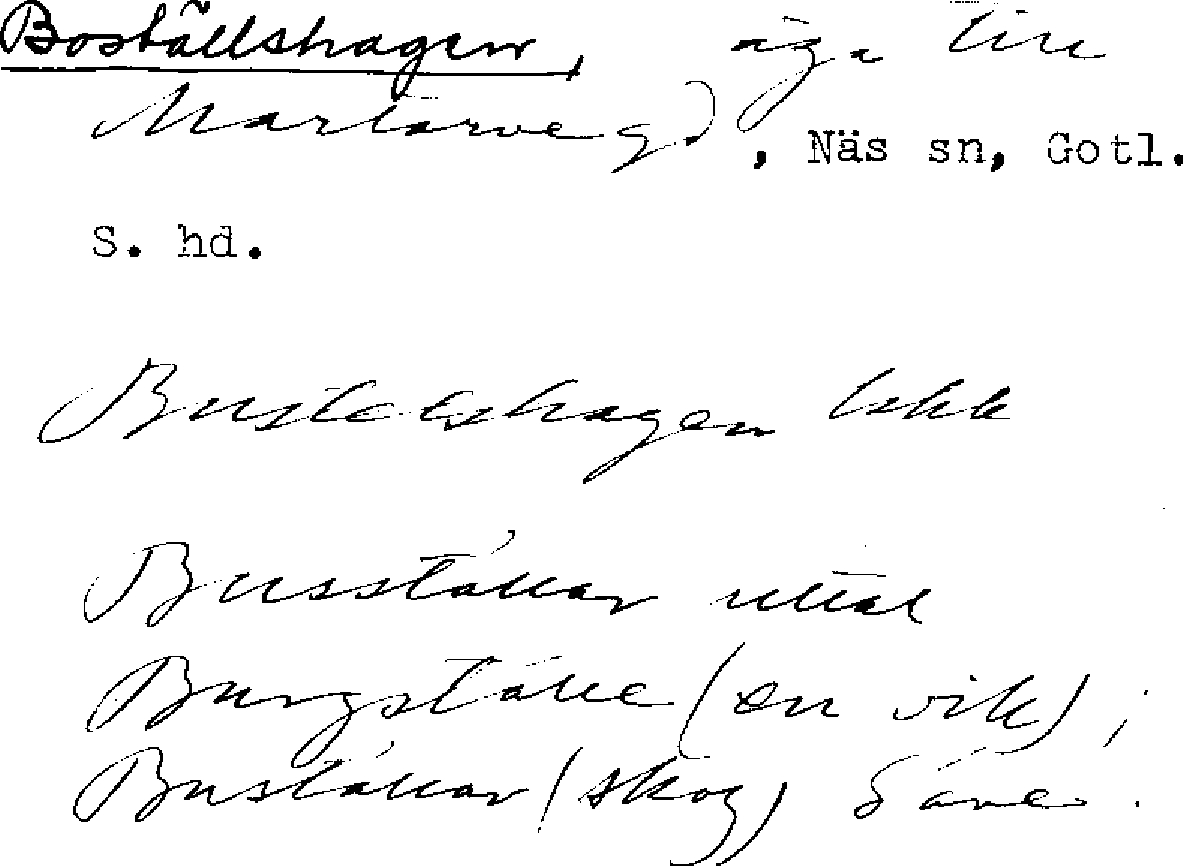 Boställshagen, äga till
Martarve gd, Näs sn, Gotl.
S. hd.
Bustelshagen Iskk
Busstäkar uttal
Burgstäke (en vik);
Bustäkar (skog) Säve.